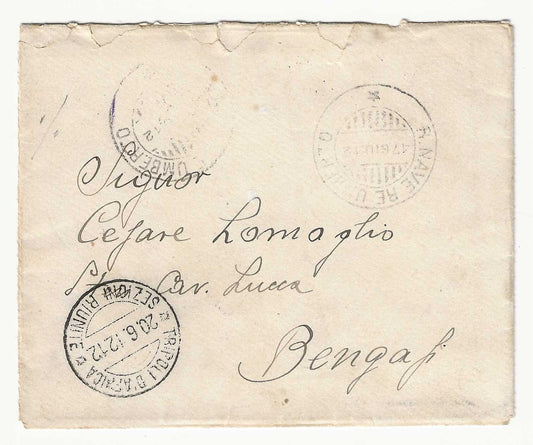 R. NAVE RE UMBERTO
17 GIU. 12
UMBERTO
12
Signor
Cesare Lomaglio
Cav. Lucca
Bengasi
TRIPOLI D'AFRICA
SEZIONI RIUNITE
20.6.12.12